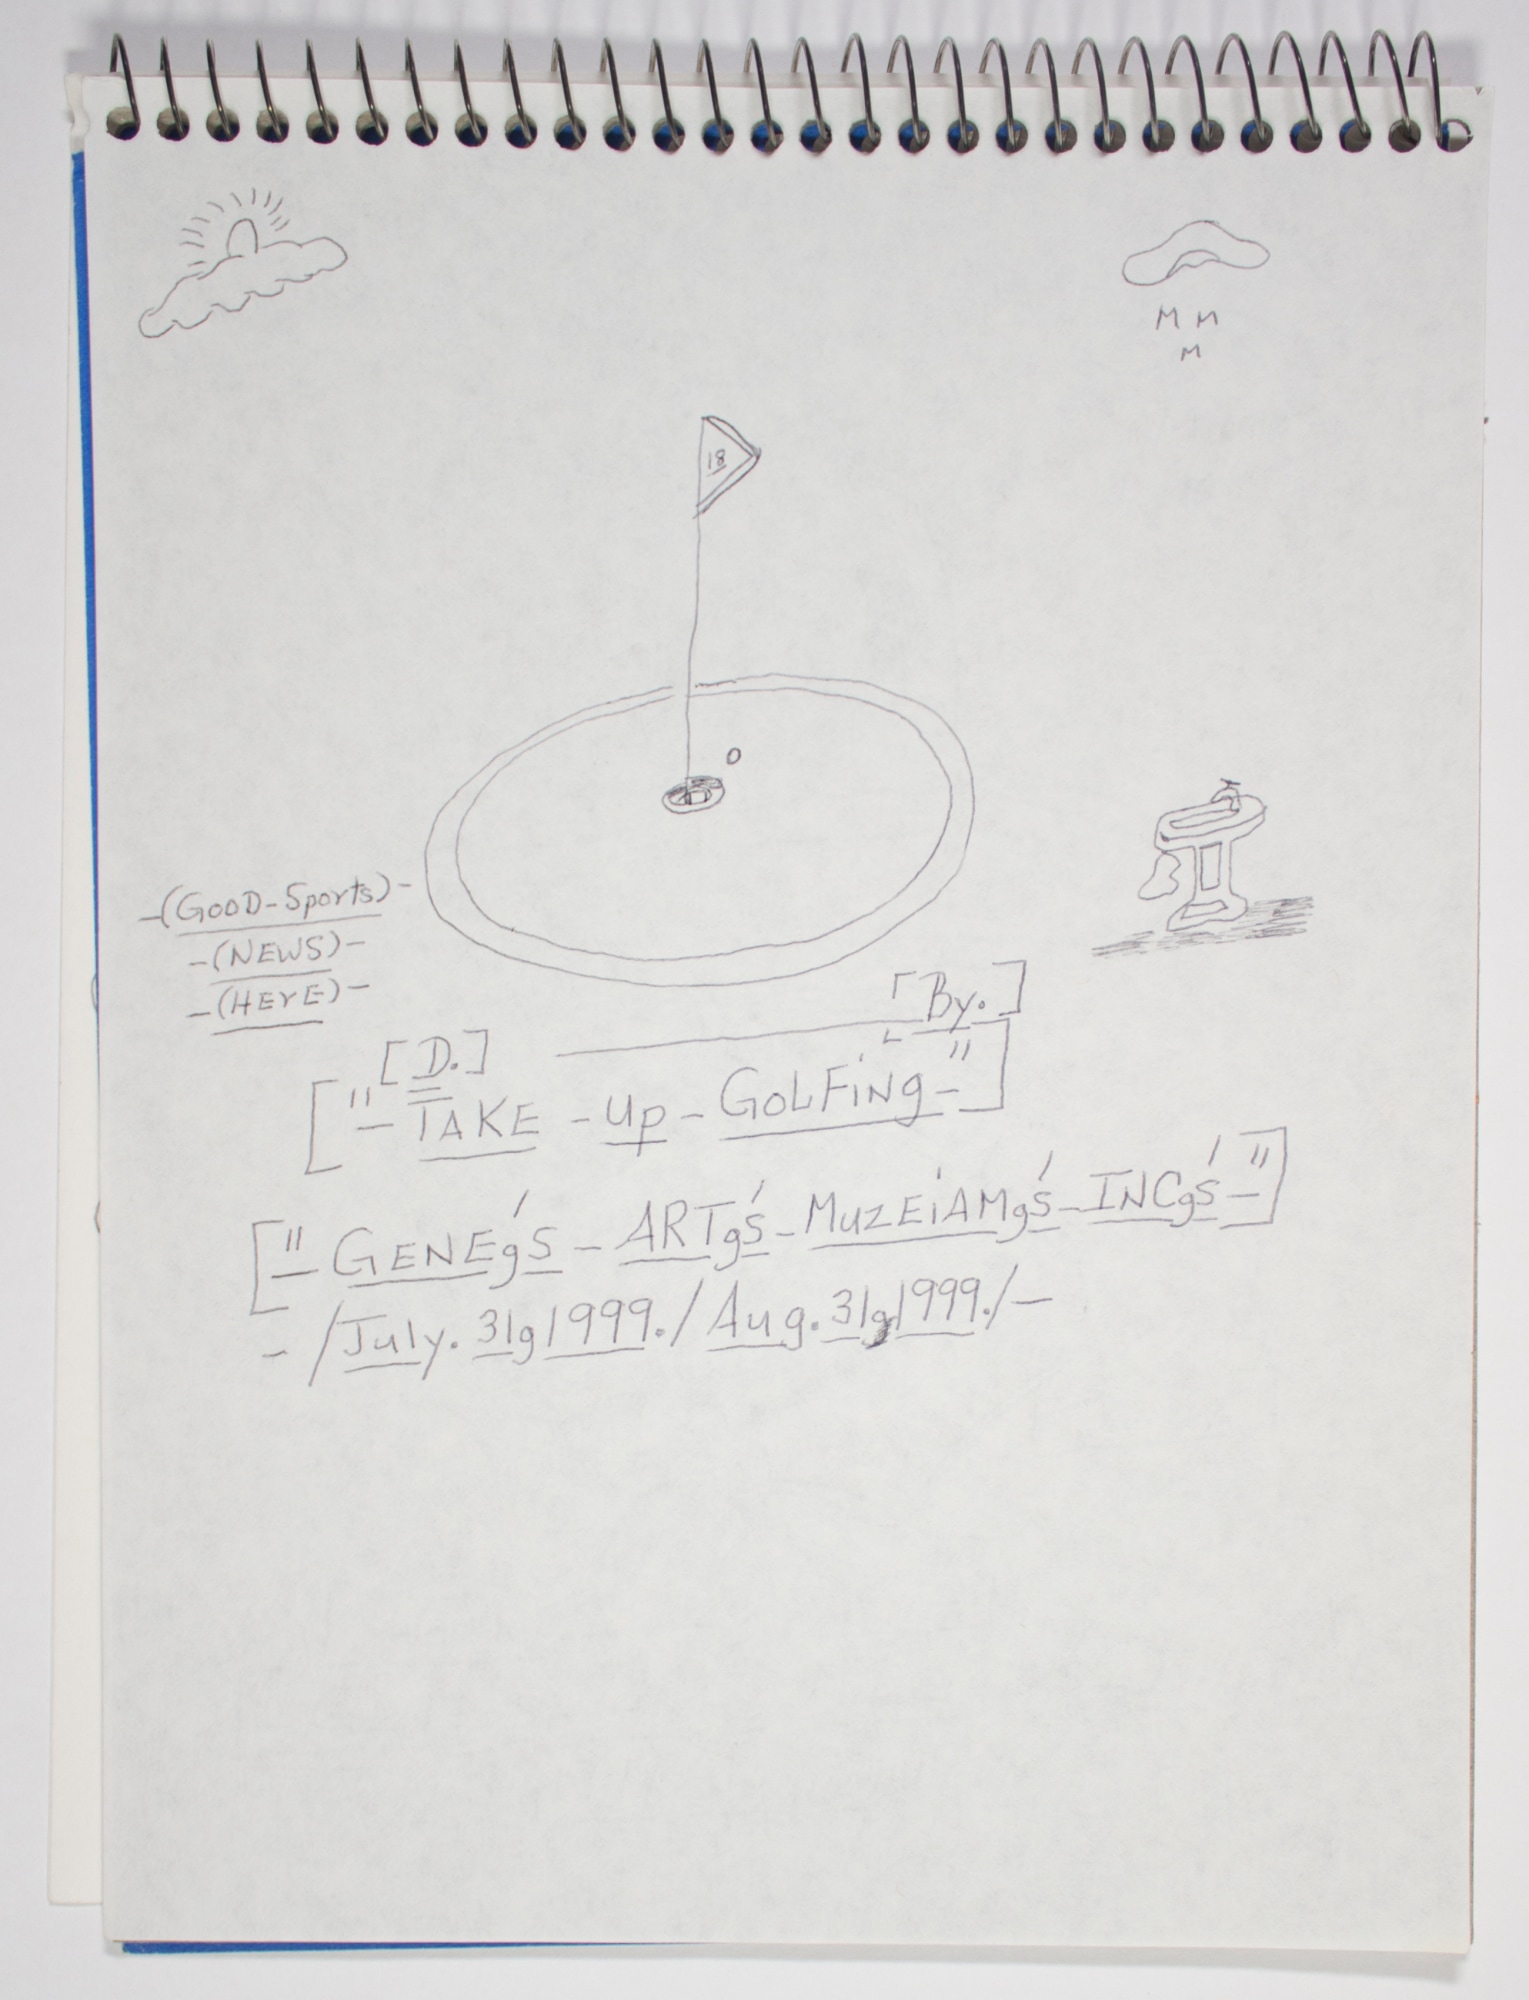 M M
M
18
-(GooD-Sports)-
-(NEWS)-
-(HErE)-
[By.]
[D.]
["- TAKE - up - GoLFiNg -"]
["- GENEg's - ARTg's - MuZEiAMg's - INCg's -"]
- /July. 31g1999./ Aug. 31g1999./-